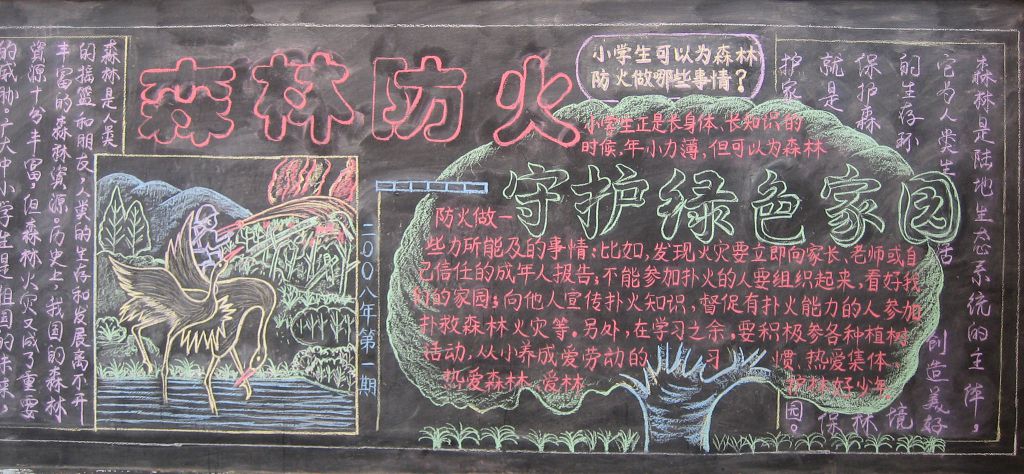 森林防火
小学生可以为森林
防火做哪些事情?
守护绿色家园
二00八年第一期
森林是人类
的摇篮和朋友,人类的生存和发展离不开
丰富的森林资源,历史上,我国的森林
资源十分丰富,但森林火灾又成了重要
的威胁,广大中小学生是祖国的未来,
小学生正是长身体、长知识的
时候,年小力薄,但可以为森林
防火做一
些力所能及的事情:比如,发现火灾要立即向家长、老师或自
己信任的成年人报告;不能参加扑火的人要组织起来,看好我
们的家园;向他人宣传扑火知识,督促有扑火能力的人参加
扑救森林火灾等。另外,在学习之余,要积极参各种植树
活动,从小养成爱劳动的 习 惯,热爱集体
热爱森林、爱林 护林好少年
森林是陆地生态系统的主体,
它为人类生活创造美好
的生存环境
保护森林
就是保
护家园。